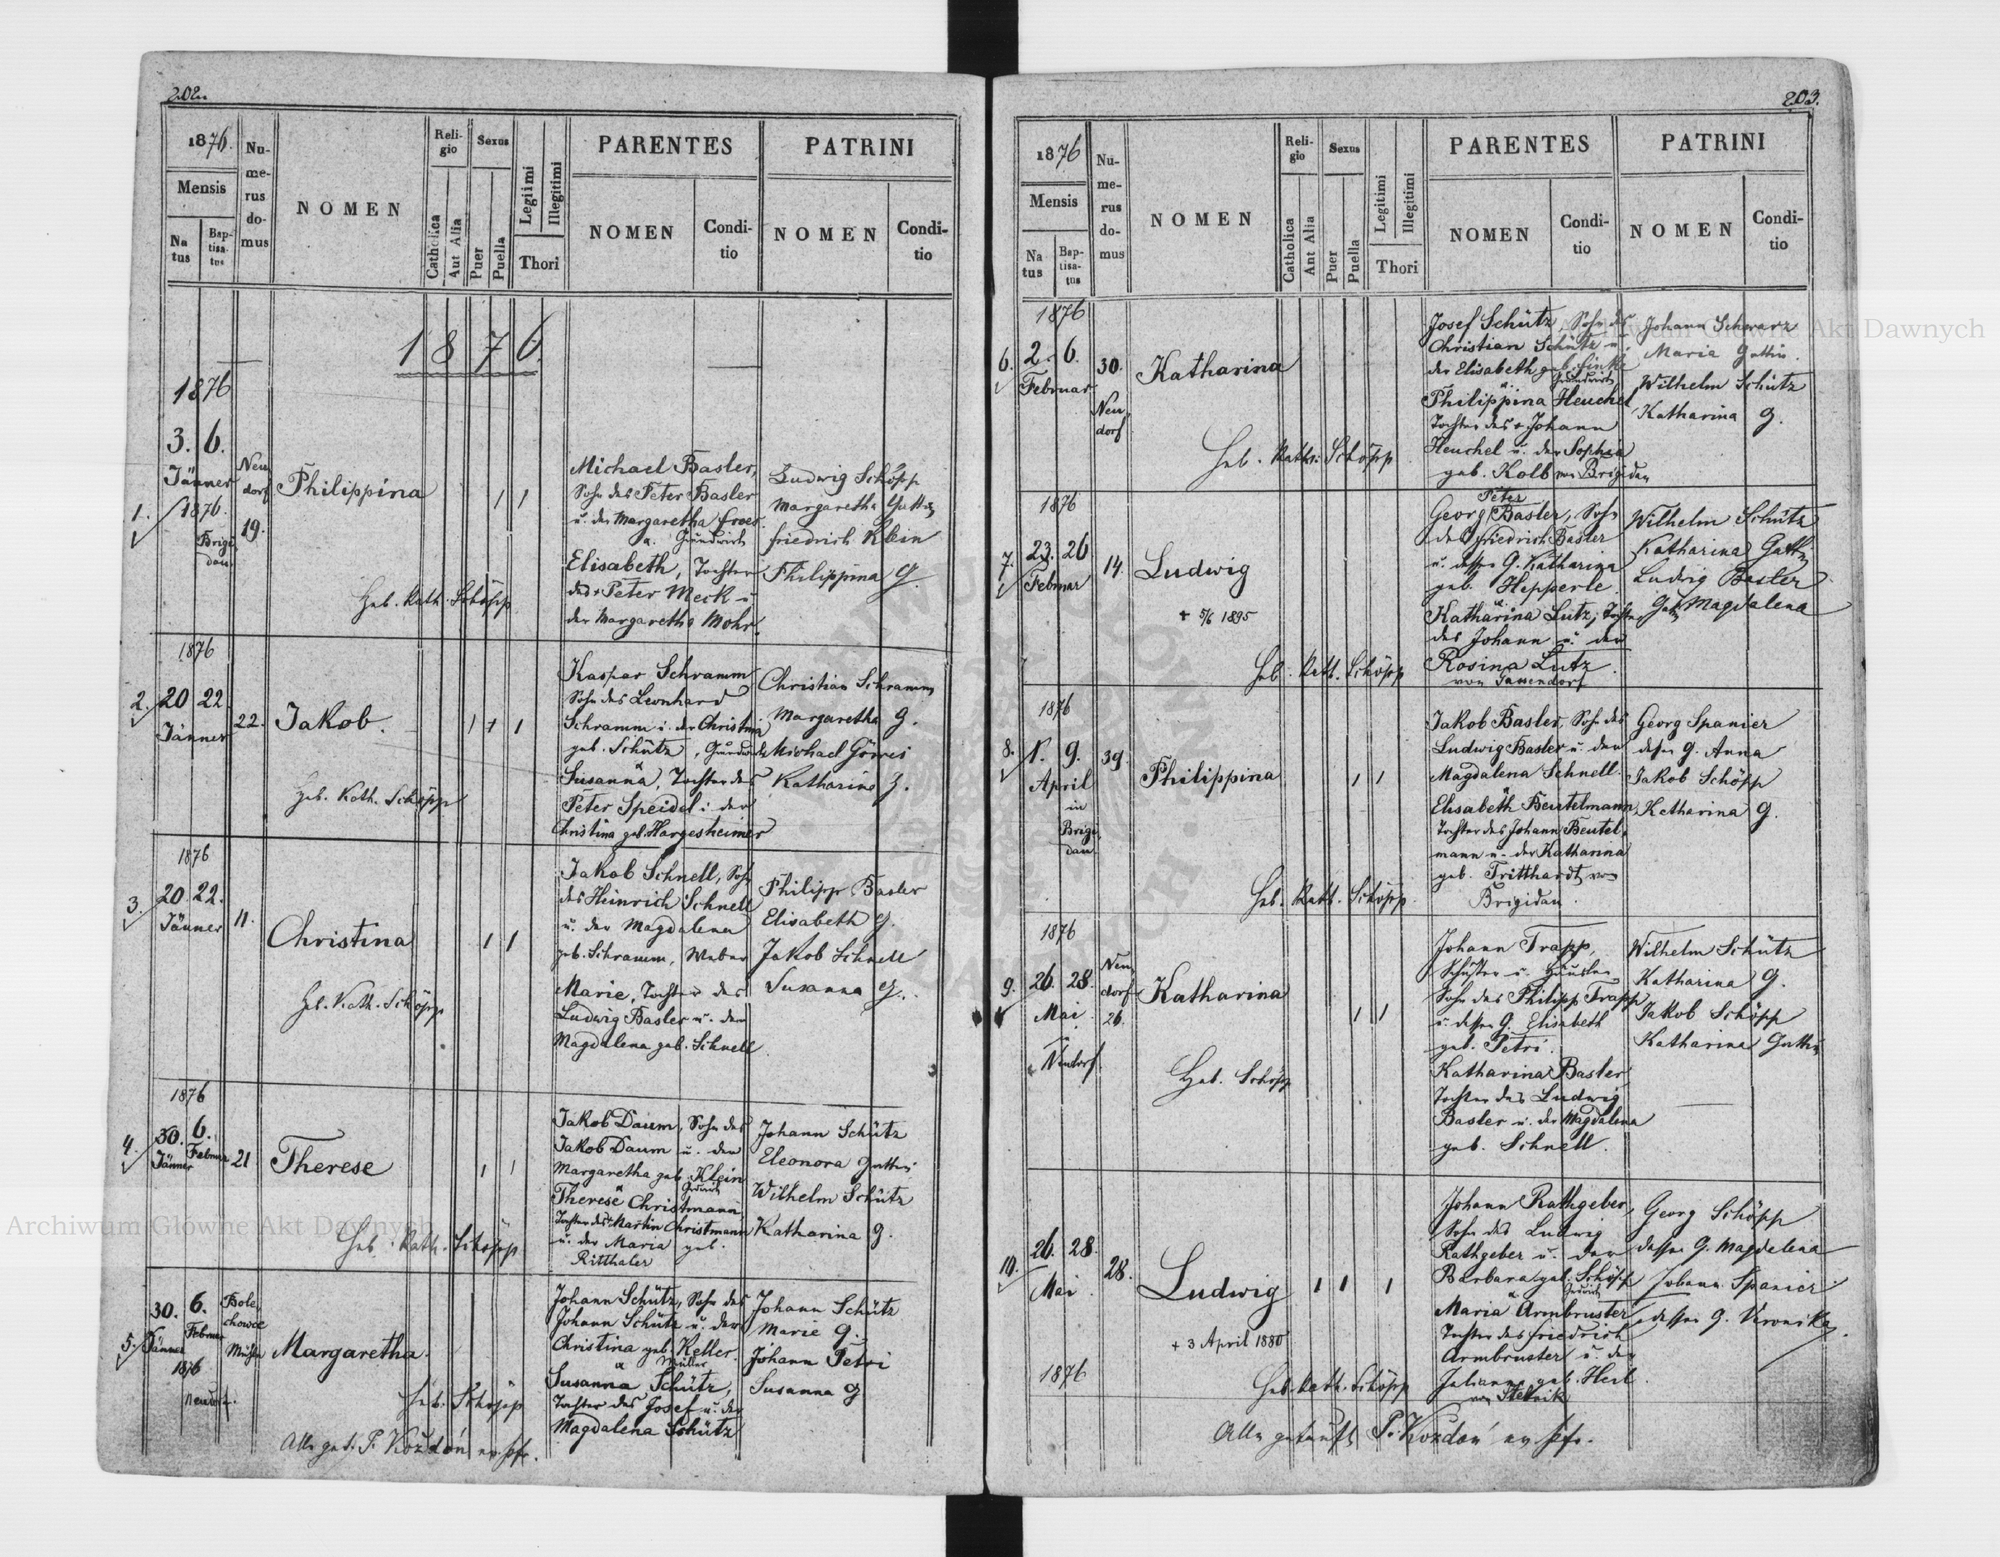 202.
1876.
Mensis
Na
tus
Bap-
tisa-
tus
Nu-
me-
rus
do-
mus
NOMEN
Reli-
gio
Catholica
Aut Alia
Sexus
Puer
Puella
Legitimi
Illegitimi
Thori
PARENTES
NOMEN
Condi-
tio
PATRINI
NOMEN
Condi-
tio
1876.
1876
3. 6.
Jänner
1876.
Brigi
dau
1.
Neu
dorf
19.
Philippina
Heb. Kath. Schöpp
Michael Basler,
Sohn des Peter Basler
u. der Margaretha
Grundwirth
Elisabeth, Tochter
des + Peter Meck u
der Margaretha Mohr.
Ludwig Schöpp
Margaretha Gattin
Friedrich Klein
Philippina G.
1876
2.
20 22
Jänner
22.
Jakob.
Heb. Kath. Schöpp
Kaspar Schramm
Sohn des Leonhard
Schramm u. der Christina
geb. Schütz, Grundwirth
Susanna, Tochter des
Peter Speidel u. der
Christina geb. Hargesheimer
Christian Schramm
Margaretha G.
Michael Görres
Katharina G.
1876
3.
20. 22.
Jänner
11.
Christina
Heb. Kath. Schöpp
Jakob Schnell, Sohn
des Heinrich Schnell
u. der Magdalena
geb. Schramm, Weber
Marie, Tochter des
Ludwig Basler u. der
Magdalena geb. Schnell
Philipp Basler
Elisabeth G.
Jakob Schnell
Susanna G.
1876
4.
30. 6.
Jänner Februar
21
Therese
Heb. Kath. Schöpp
Jakob Daum, Sohn des
Jakob Daum u. der
Margaretha geb. Klein
Therese Christmann
Tochter des Martin Christmann
u. der Maria geb.
Ritthaler
Johann Schütz
Eleonora Gattin
Wilhelm Schütz
Katharina G.
5.
30. 6.
Jänner Februar
1876
Neudorf.
Bole
chowce
Mühle
Margaretha.
Heb. Schöpp
Johann Schütz, Sohn des
Johann Schütz u. der
Christina geb. Keller.
Müller
Susanna Schütz,
Tochter des Josef u. der
Magdalena Schütz
Johann Schütz
Marie G.
Johann Petri
Susanna G
Alle get. P. Kozdoń ev. Pfr.
203.
1876
Mensis
Na
tus
Bap-
tisa-
tus
Nu-
me-
rus
do-
mus
NOMEN
Reli-
gio
Catholica
Ant Alia
Sexus
Puer
Puella
Legitimi
Illegitimi
Thori
PARENTES
NOMEN
Condi-
tio
PATRINI
NOMEN
Condi-
tio
1876
6.
2. 6.
Februar
30.
Neu
dorf
Katharina
Heb. Kath. Schöpp
Josef Schütz, Sohn des
Christian Schütz u.
der Elisabeth geb. Finke
Grundwirth
Philippina Heuchel
Tochter des + Johann
Heuchel u. der Sophia
geb. Kolb von Brigidau
Johann Schwarz
Maria Gattin.
Wilhelm Schütz
Katharina G.
1876
7.
23. 26
Februar
14.
Ludwig
+ 5/6 1895
Heb. Kath. Schöpp
Peter
Georg Basler, Sohn
des Friedrich Basler
u. dessen G. Katharina
geb. Hepperle.
Katharina Lutz, Tochter
des Johann u. der
Rosina Lutz.
Wilhelm Schütz
Katharina Gattin
Ludwig Basler
Gattin Magdalena
1876
8.
1. 9.
April
in
Brigi
dau.
39.
Philippina
Heb. Kath. Schöpp.
Jakob Basler, Sohn des
Ludwig Basler u. der
Magdalena Schnell.
Elisabeth Beutelmann
Tochter des Johann Beutel
mann u. der Katharina
geb. Tritthardt von
Brigidau.
Georg Spanier
dessen G. Anna
Jakob Schöpp
Katharina G.
1876
9.
26. 28.
Mai.
Neudorf
Neu
dorf
26.
Katharina
Heb. Schöpp
Johann Trapp,
Schuster u. Häusler
Sohn des Philipp Trapp
u. dessen G. Elisabeth
geb. Petri.
Katharina Basler
Tochter des Ludwig
Basler u. der Magdalena
geb. Schnell.
Wilhelm Schütz
Katharina G.
Jakob Schöpp
Katharina Gattin
10.
26. 28.
Mai
1876
28.
Ludwig
+ 3 April 1880
Heb. Kath. Schöpp
Johann Rathgeber,
Sohn des Ludwig
Rathgeber u. der
Barbara geb. Schöpp
Maria Armbruster
Tochter des Friedrich
Armbruster u. der
Juliana geb. Heil.
Georg Schöpp
dessen G. Magdalena
Johann Spanier
dessen G. Veronika.
Alle getauft P. Kozdoń ev. Pfr.
Archiwum Główne Akt Dawnych
Akt Dawnych